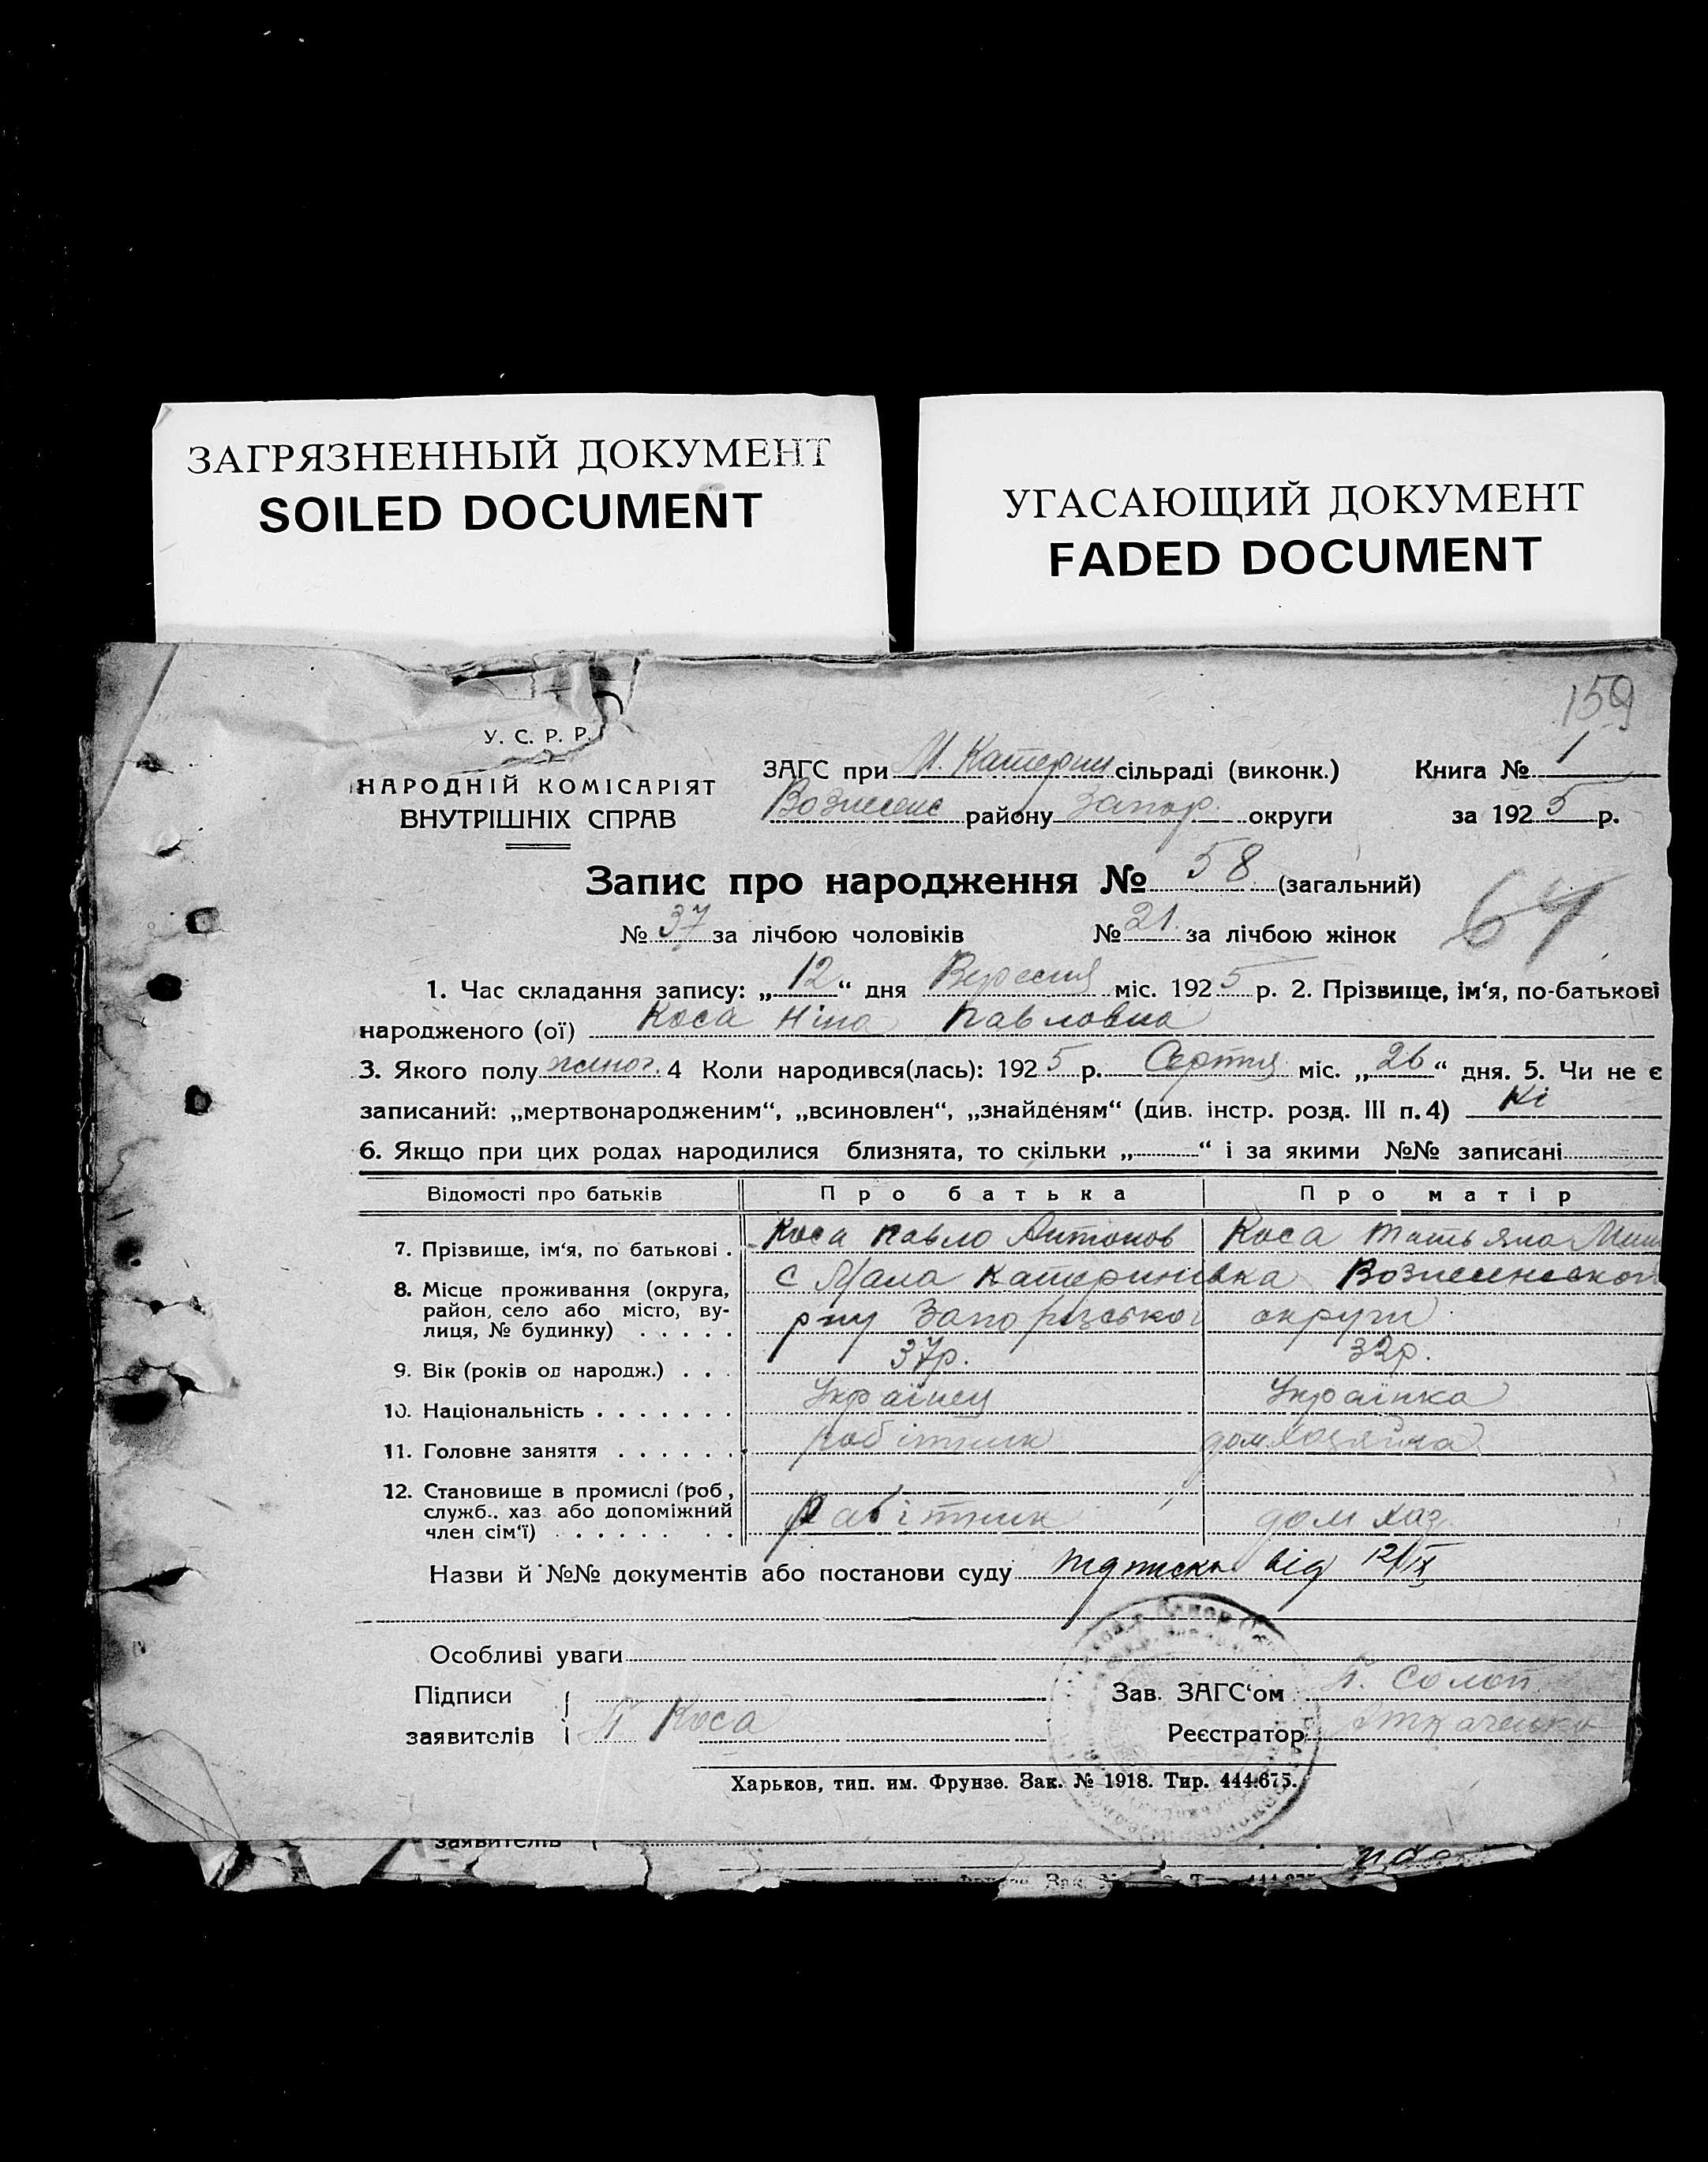 ЗАГРЯЗНЕННЫЙ ДОКУМЕНТ
SOILED DOCUMENT
УГАСАЮЩИЙ ДОКУМЕНТ
FADED DOCUMENT
159
У. С. Р. Р.
НАРОДНІЙ КОМІСАРІЯТ
ВНУТРІШНІХ СПРАВ
ЗАГС при М. Катерин сільраді (виконк.) Книга № 1
Вознесенс району Запор. округи за 1925 р.
Запис про народження № 58 (загальний)
№ 37 за лічбою чоловіків № 21. за лічбою жінок
64
1. Час складання запису: „12“ дня Вересня міс. 1925 р. 2. Прізвище, ім‘я, по-батькові
народженого (ої) Коса Ніна Павловна
3. Якого полу жіноч. 4 Коли народився(лась): 1925 р. Серпня міс. „26“ дня. 5. Чи не є
записаний: „мертвонародженим“, „всиновлен“, „знайденям“ (див. інстр. розд. III п. 4) Ні
6. Якщо при цих родах народилися близнята, то скільки „ “ і за якими №№ записані
Відомості про батьків Про батька Про матір
7. Прізвище, ім‘я, по батькові . Коса Павло Антонов Коса Татьяна
8. Місце проживання (округа, с Мала Катеринівка Вознесенского
район, село або місто, ву- р ну Запорізької округи
лиця, № будинку) . . . . .
9. Вік (років од народж.) . . . 37р. 32р.
10. Національність . . . . . . . Українец Українка
11. Головне заняття . . . . . . робітник дом.хозяйка
12. Становище в промислі (роб,
служб.. хаз або допоміжний Рабітник дом хаз.
член сім‘ї) . . . . . . . .
Назви й №№ документів або постанови суду підписка від 12/IX
Особливі уваги
Підписи Зав. ЗАГС‘ом Солоп
заявителів П Коса Реєстратор Ткаченко
Харьков, тип. им. Фрунзе. Зак. № 1918. Тир. 444.675.
заявителів